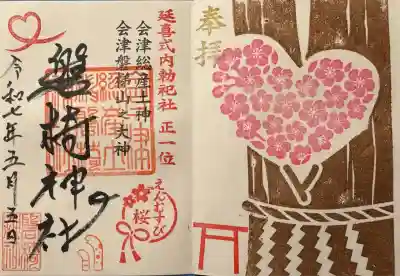 奉拝
延喜式内勅祀社 正一位
会津総産土神
会津磐椅山之大神
磐椅神社
えんむすび
桜
令和七年五月五日